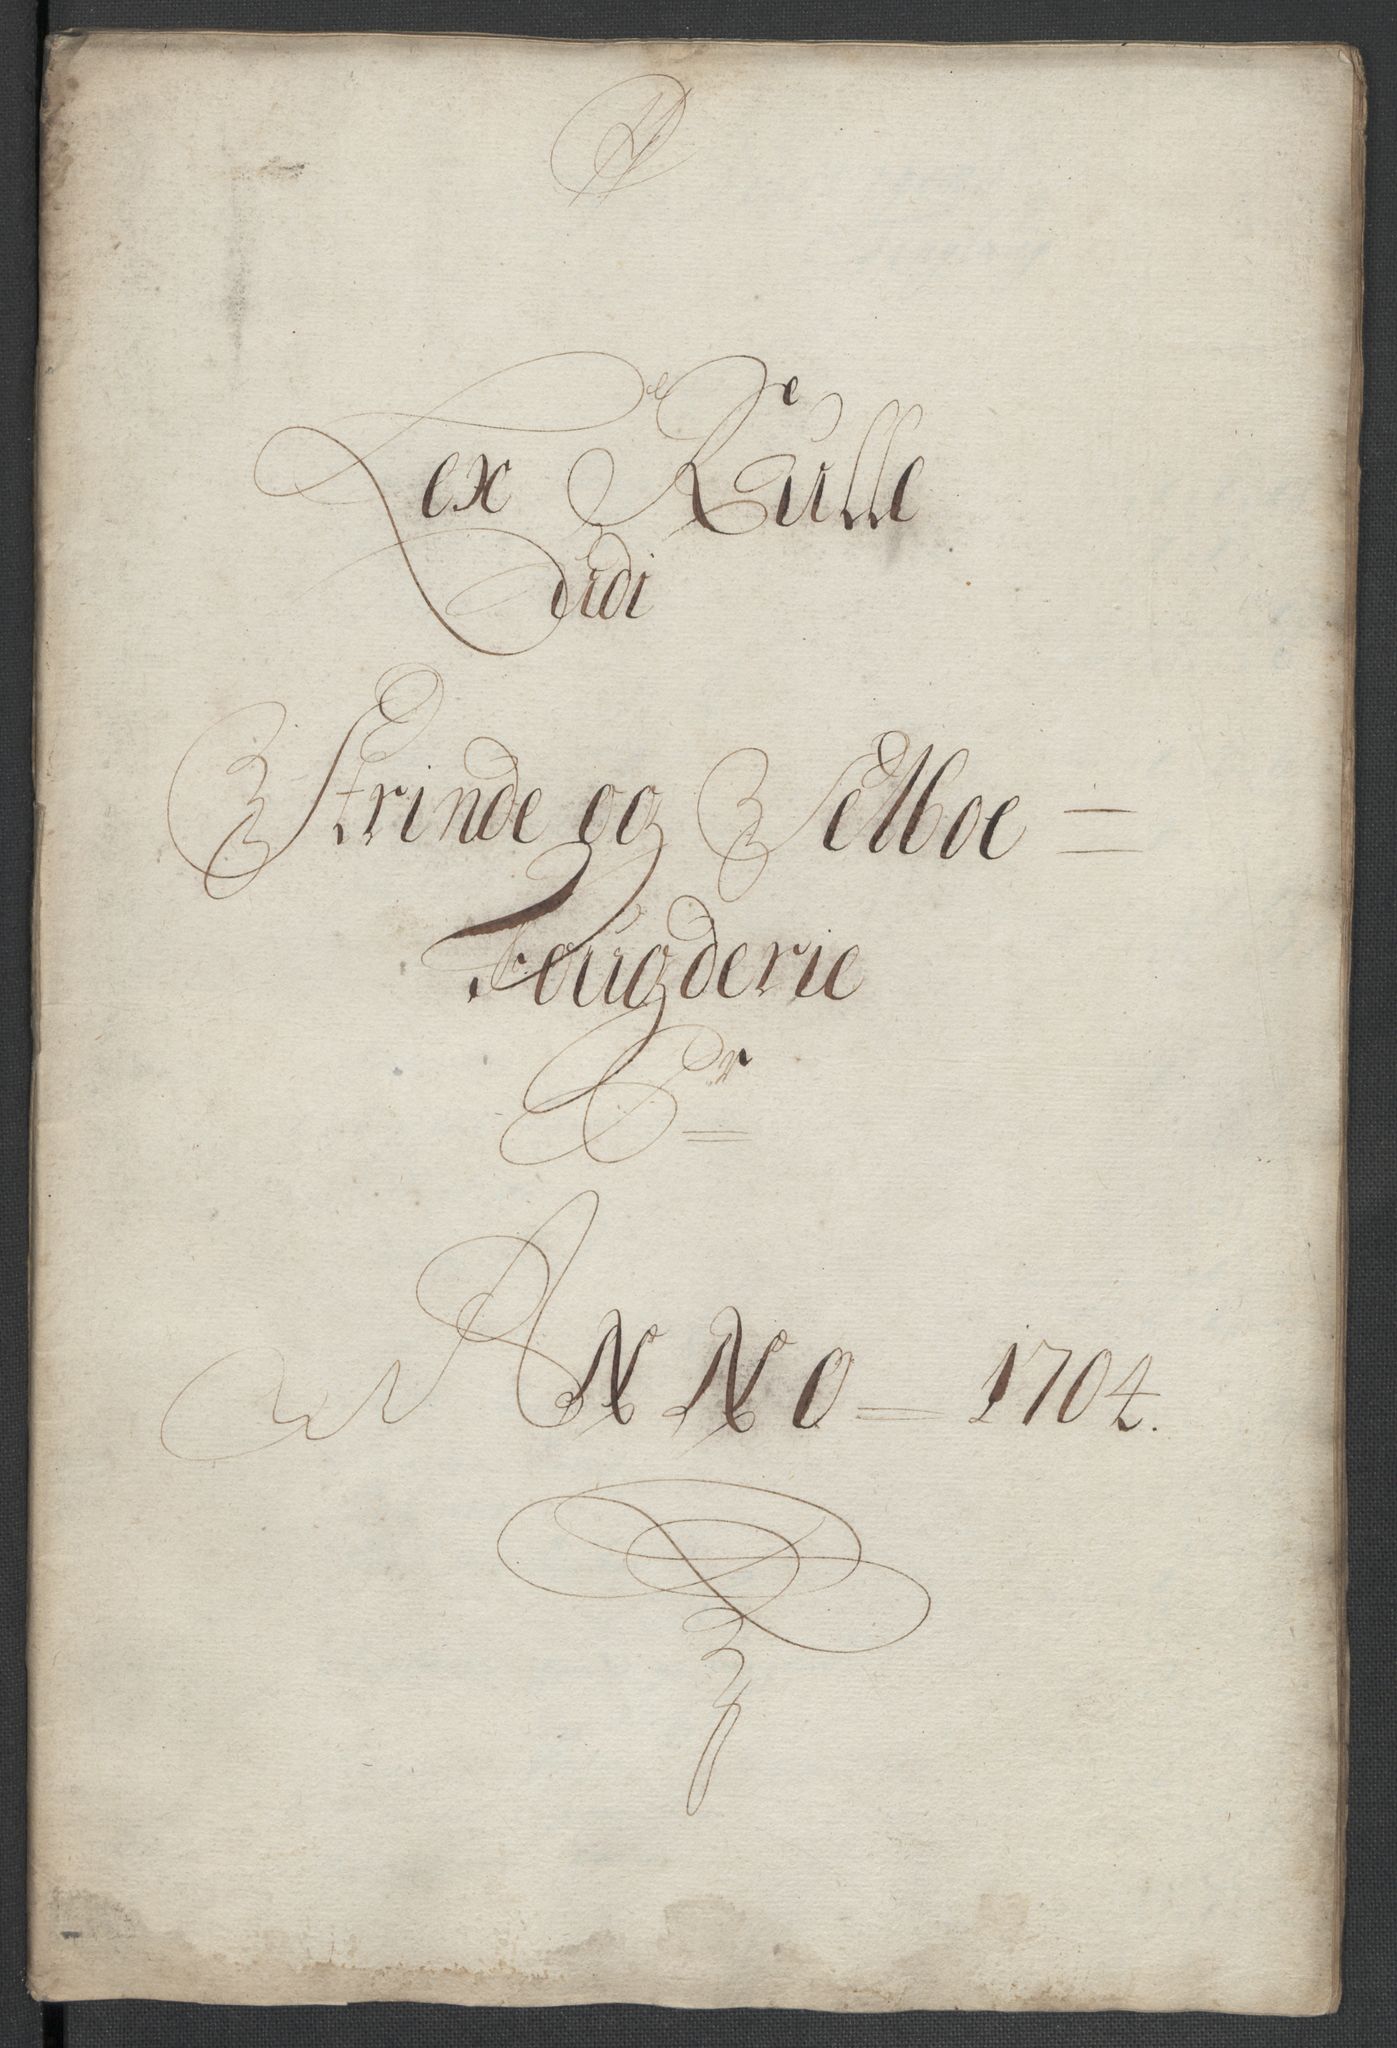 Lex Rulle
Udi
Strinde og Selboe =
Fougderie
Pr
ANNO = 1704.